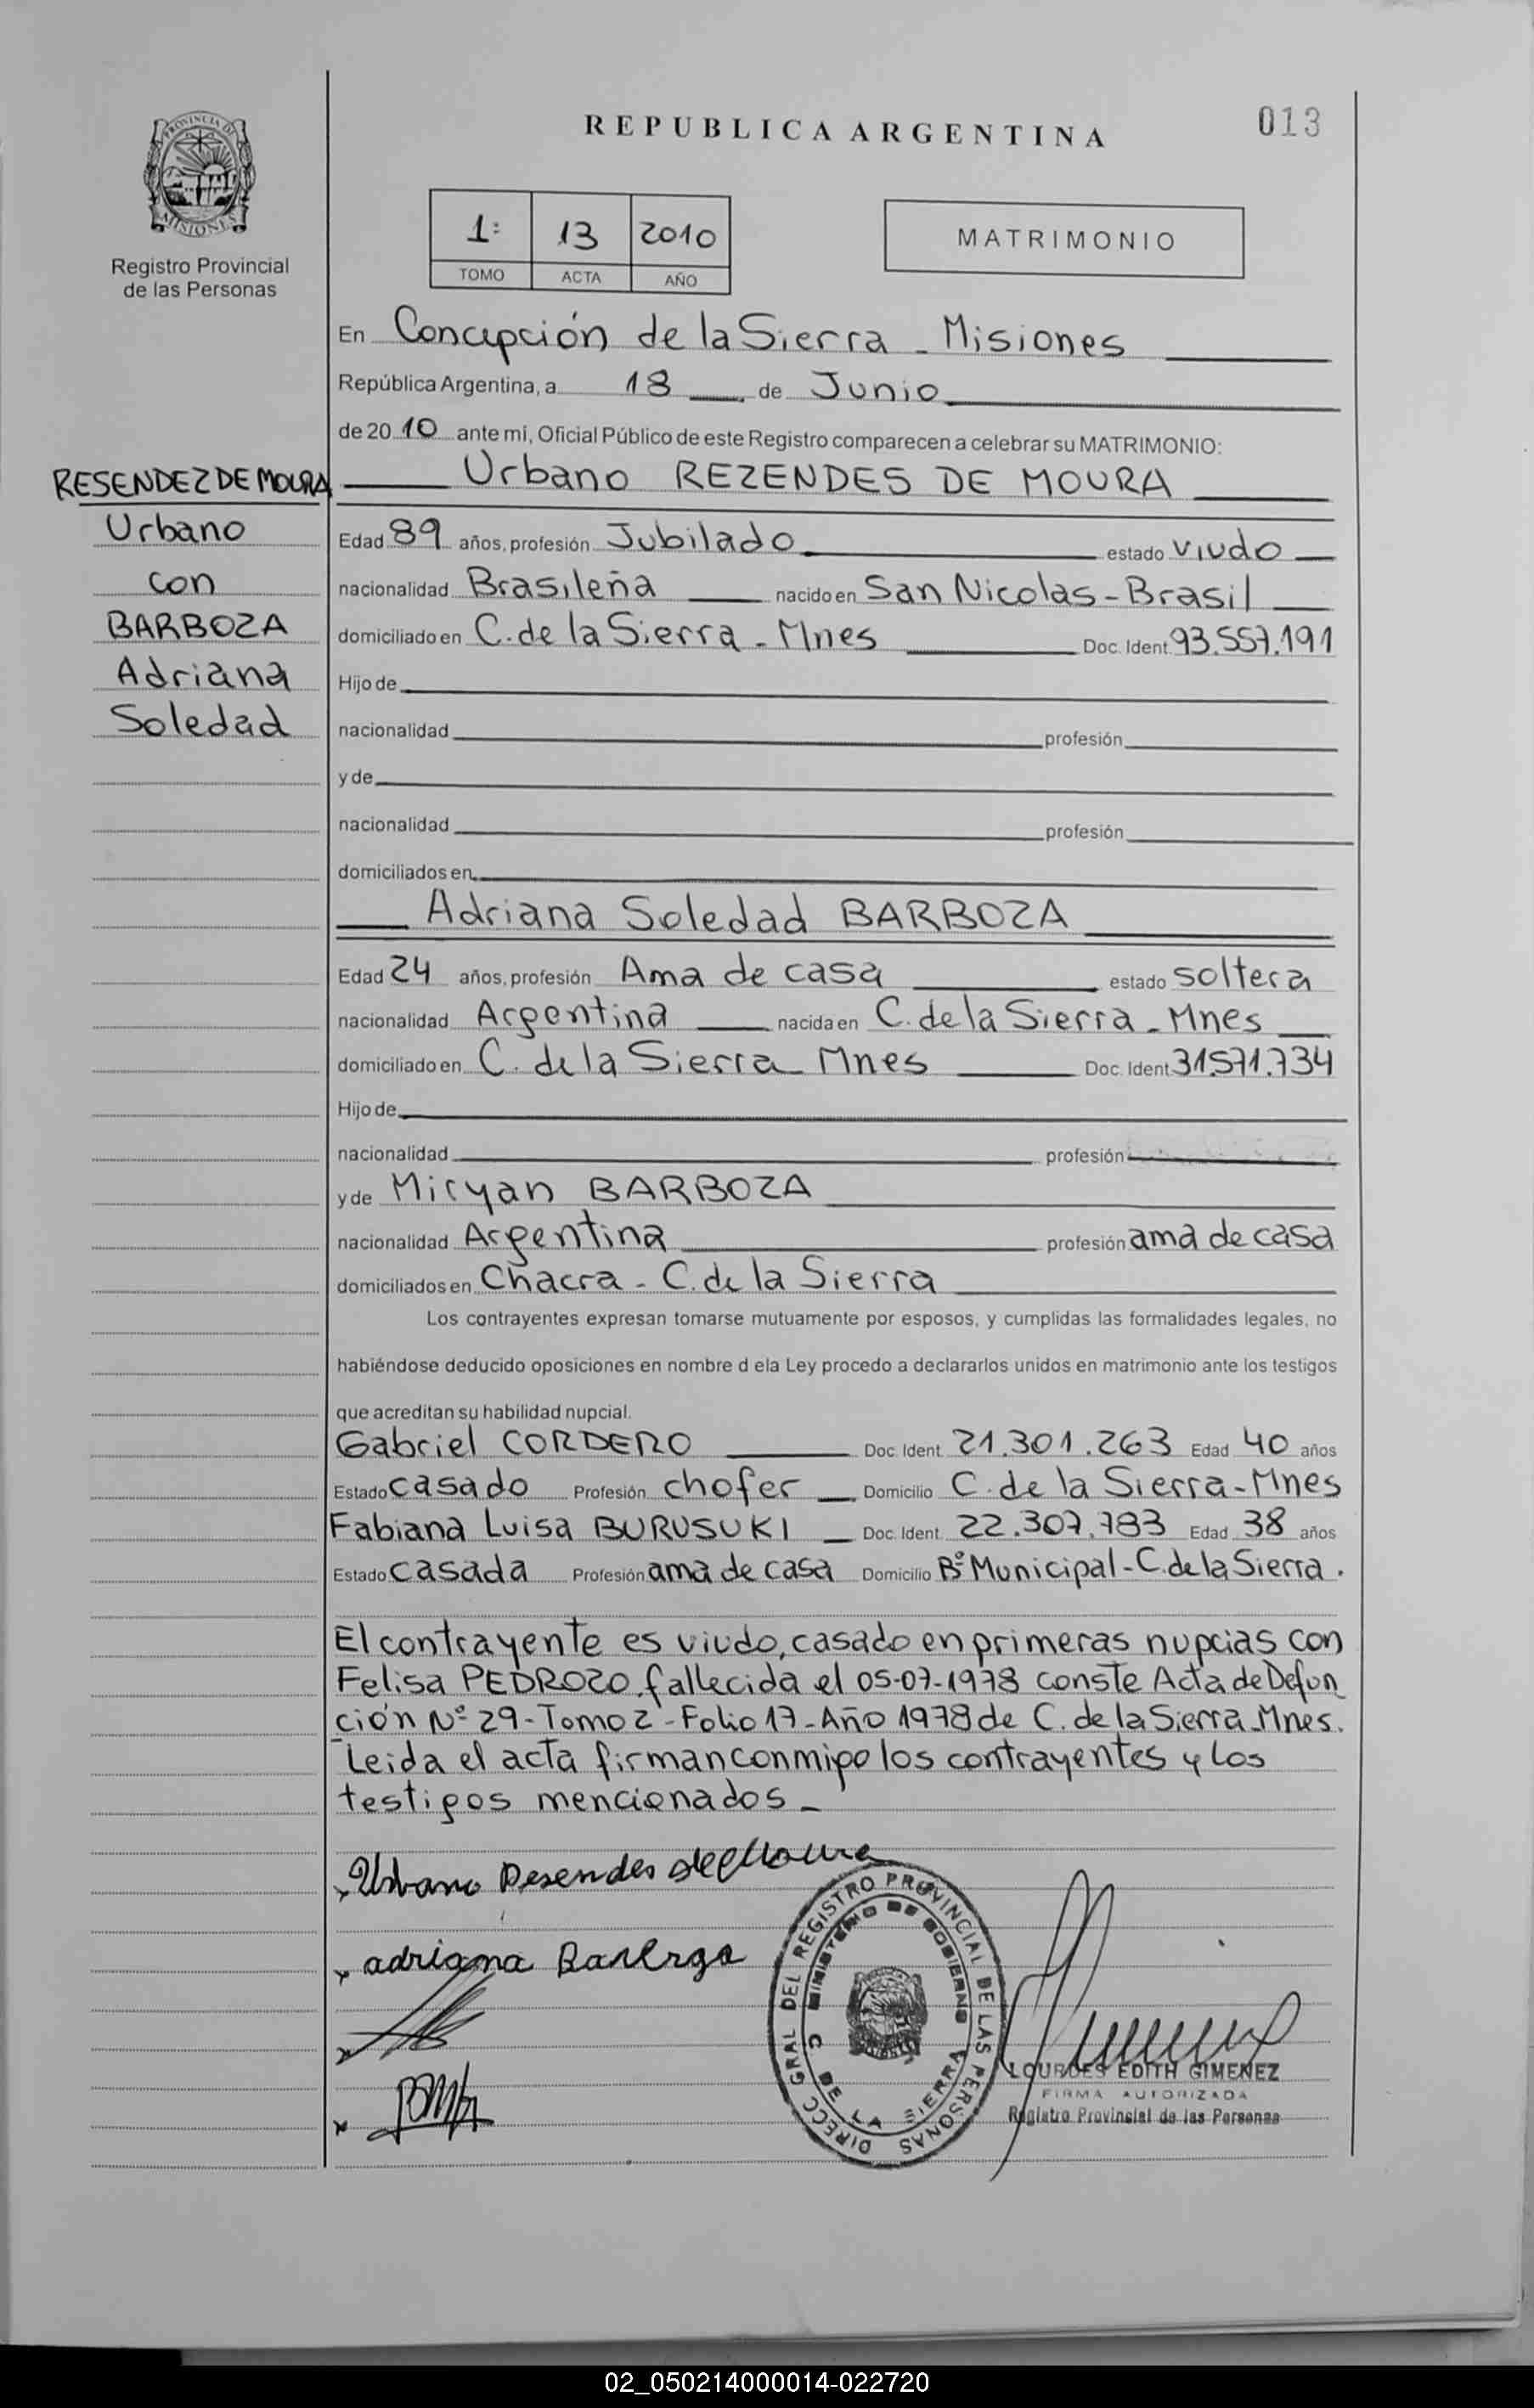 PROVINCIA DE
MISIONES
Registro Provincial
de las Personas
REPUBLICA ARGENTINA
013
1: 13 2010
TOMO ACTA AÑO
MATRIMONIO
En Concepción de la Sierra - Misiones
República Argentina, a 18 de Junio
de 20 10 ante mí, Oficial Público de este Registro comparecen a celebrar su MATRIMONIO:
RESENDEZ DE MOURA
Urbano
con
BARBOZA
Adriana
Soledad
Urbano REZENDES DE MOURA
Edad 89 años, profesión Jubilado estado viudo
nacionalidad Brasileña nacido en San Nicolas - Brasil
domiciliado en C. de la Sierra - Mnes Doc. Ident. 93.557.191
Hijo de
nacionalidad profesión
y de
nacionalidad profesión
domiciliados en
Adriana Soledad BARBOZA
Edad 24 años, profesión Ama de casa estado soltera
nacionalidad Argentina nacida en C. de la Sierra - Mnes
domiciliado en C. de la Sierra - Mnes Doc. Ident. 31.571.734
Hijo de
nacionalidad profesión
y de Miryan BARBOZA
nacionalidad Argentina profesión ama de casa
domiciliados en Chacra - C. de la Sierra
Los contrayentes expresan tomarse mutuamente por esposos, y cumplidas las formalidades legales, no
habiéndose deducido oposiciones en nombre d ela Ley procedo a declararlos unidos en matrimonio ante los testigos
que acreditan su habilidad nupcial.
Gabriel CORDERO Doc. Ident. 21.301.263 Edad 40 años
Estado casado Profesión chofer Domicilio C. de la Sierra - Mnes
Fabiana Luisa BURUSUKI Doc. Ident. 22.307.783 Edad 38 años
Estado casada Profesión ama de casa Domicilio Bº Municipal - C. de la Sierra.
El contrayente es viudo, casado en primeras nupcias con
Felisa PEDROZO, fallecida el 05-07-1978 conste Acta de Defun
ción Nº 29 - Tomo 2 - Folio 17 - Año 1978 de C. de la Sierra - Mnes.
Leida el acta firman conmigo los contrayentes y los
testigos mencionados -
Urbano Resendes de Moura
adriana Barboza
DIRECC GRAL DEL REGISTRO PROVINCIAL DE LAS PERSONAS
MINISTERIO DE GOBIERNO
C DE LA SIERRA
LOURDES EDITH GIMENEZ
FIRMA AUTORIZADA
Registro Provincial de las Personas
02_050214000014-022720